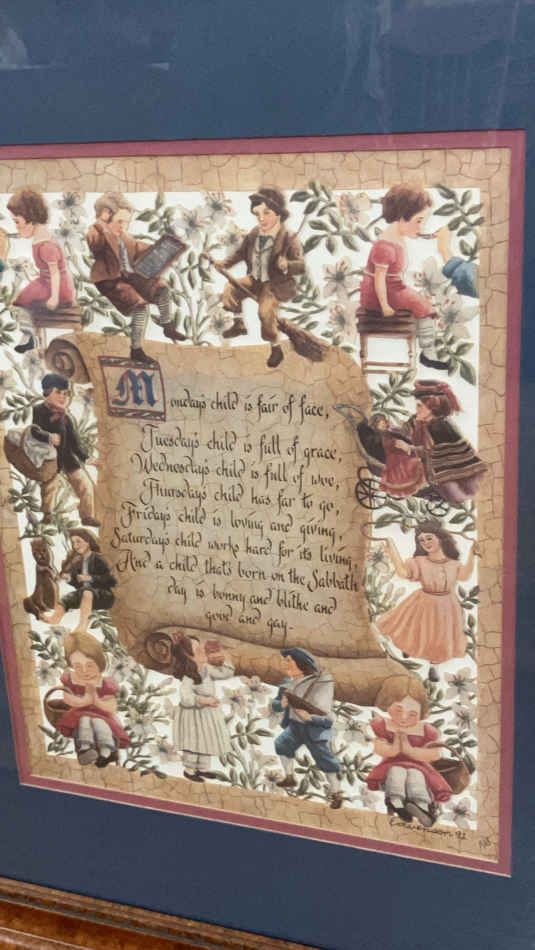 Monday's child is fair of face,
Tuesday's child is full of grace,
Wednesday's child is full of woe,
Thursday's child has far to go,
Friday's child is loving and giving,
Saturday's child works hard for its living,
And a child that's born on the Sabbath
day is bonny and blithe and
good and gay.
92